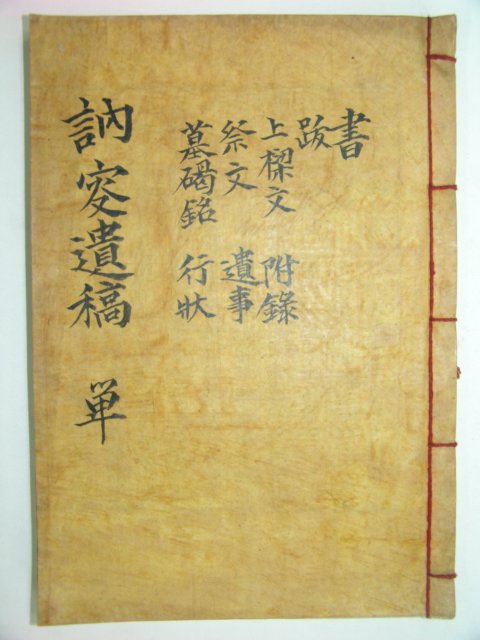 書
跋
上樑文 附錄
祭文 遺事
墓碣銘 行狀
訥叜遺稿 単